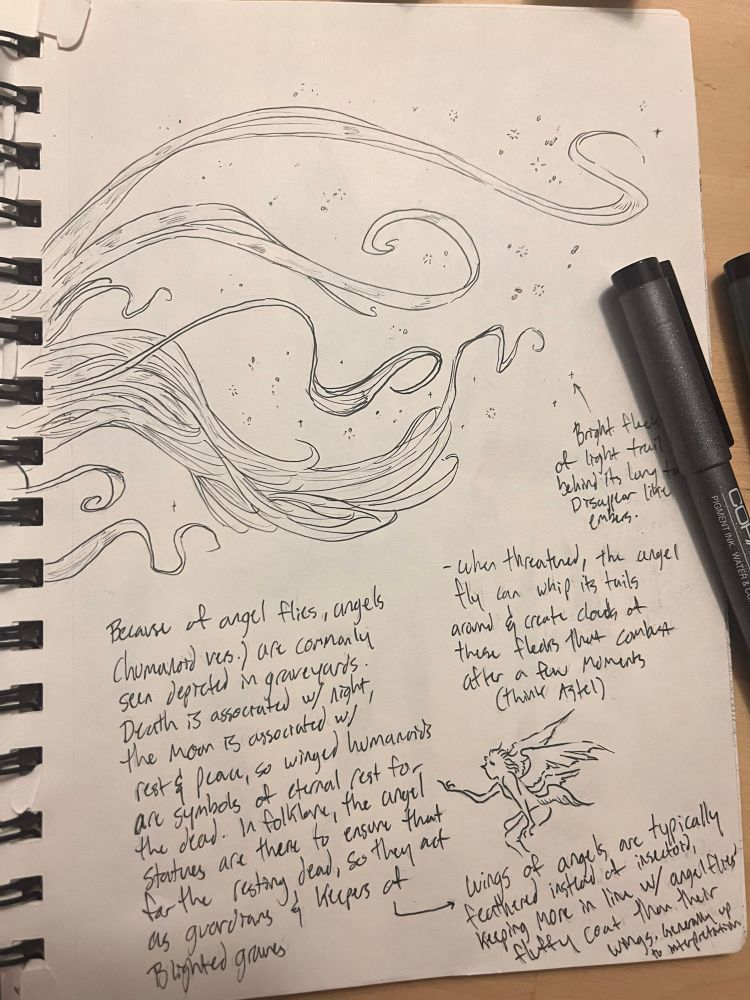 Bright flecks
of light trail
behind its long
Disappear like
embers.
- when threatened, the angel
fly can whip its tails
around & create clouds of
these flecks that combust
after a few moments
(think Astel)
Because of angel flies, angels
(humanoid vers.) are commonly
seen depicted in graveyards.
Death is associated w/ night,
the moon is associated w/
rest & peace, so winged humanoids
are symbols of eternal rest for
the dead. In folklore, the angel
statues are there to ensure that
for the resting dead, so they act
as guardians & keepers of
Blighted graves
wings of angels are typically
feathered instead of insectoid,
keeping more in line w/ angelflies'
fluffy coat than their
wings. Generally up
to interpretation
COP
PIGMENT INK, WATER &